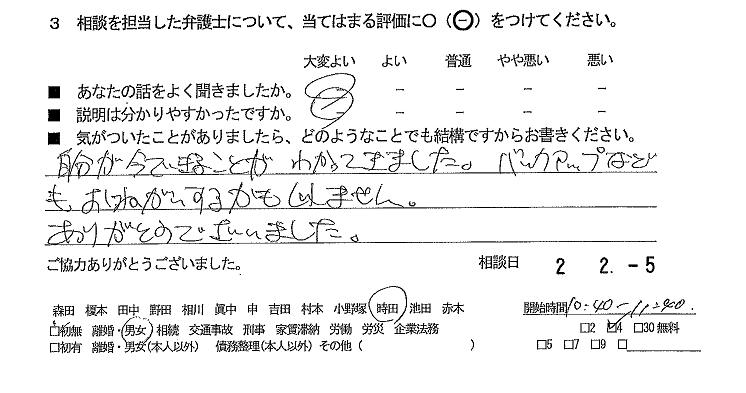 3 相談を担当した弁護士について、当てはまる評価に○（⊖）をつけてください。
大変よい よい 普通 やや悪い 悪い
■ あなたの話をよく聞きましたか。 － － － － －
■ 説明は分かりやすかったですか。 － － － － －
■ 気がついたことがありましたら、どのようなことでも結構ですからお書きください。
自分が今できることが わかってきました。 バックアップなど
も おねがいするかもしれません。
ありがとうございました。
ご協力ありがとうございました。 相談日 2 2.-5
森田 榎本 田中 野田 相川 眞中 申 吉田 村本 小野塚 時田 池田 赤木 開始時間 10:40-11:40.
□初無 離婚・男女 相続 交通事故 刑事 家賃滞納 労働 労災 企業法務 □2 □4 □30 無料
□初有 離婚・男女(本人以外) 債務整理(本人以外) その他（ ） □5 □7 □9 □